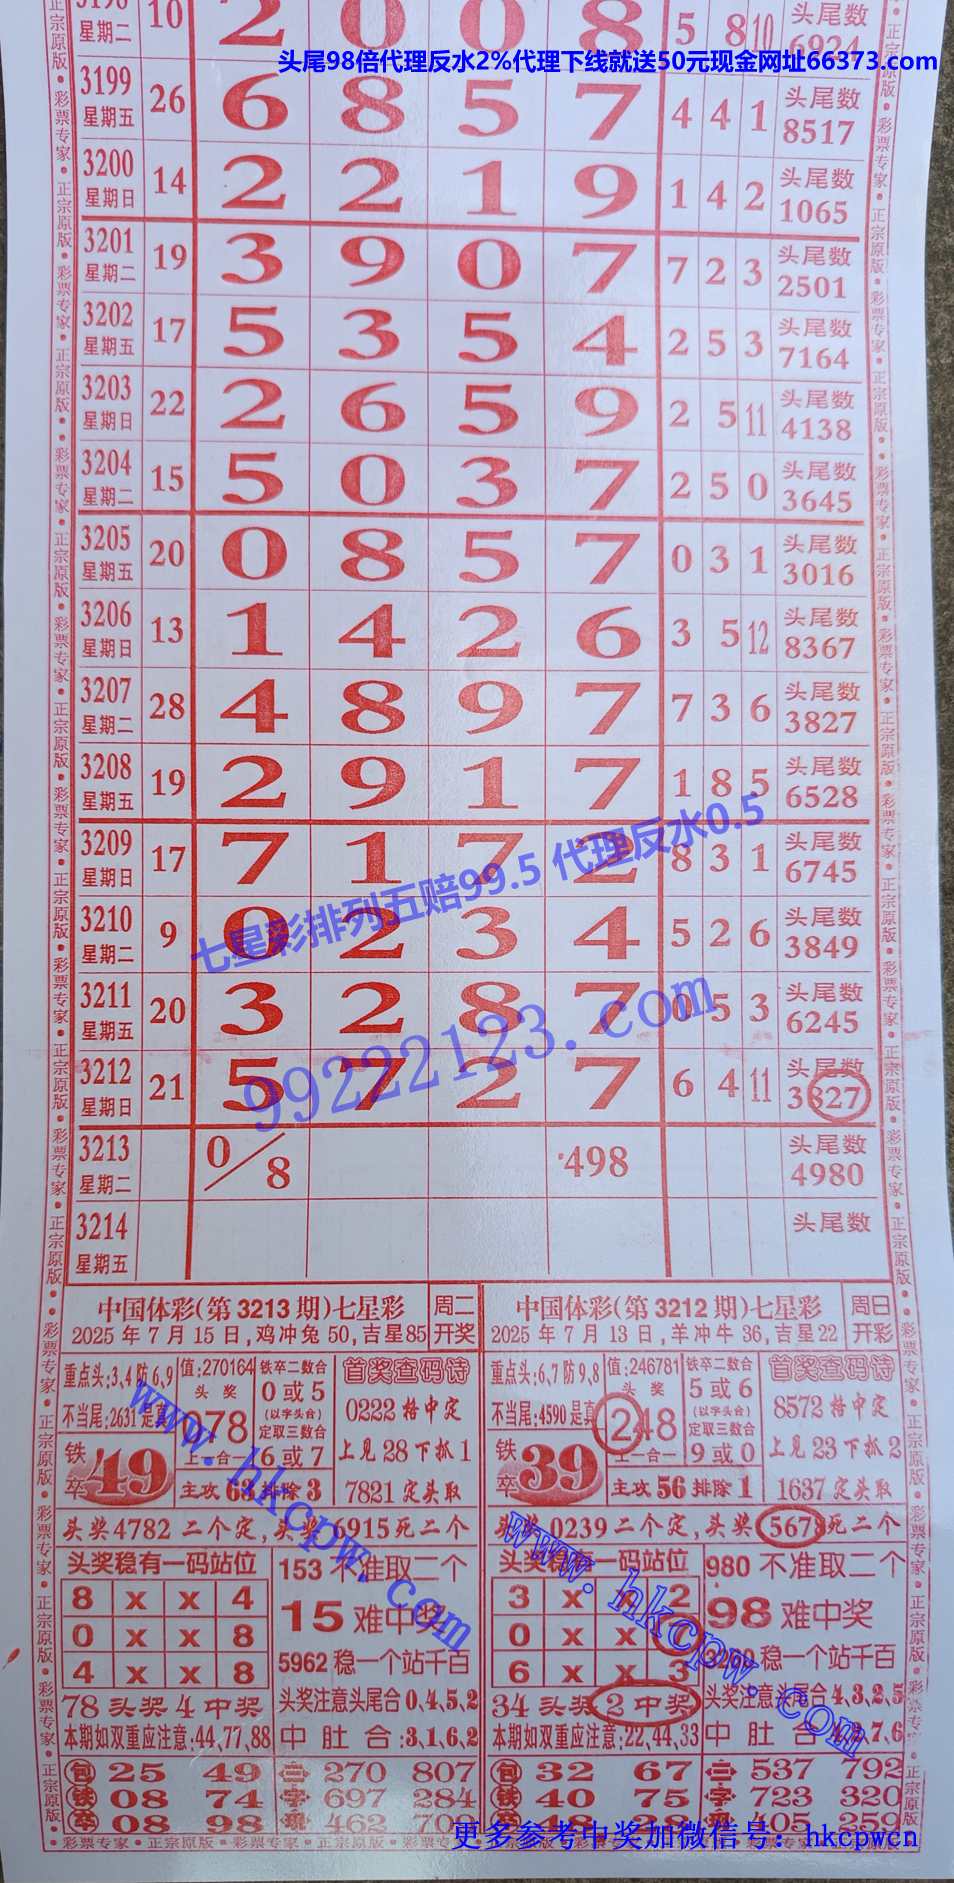 星期二 10 2 0 0 8 5 8 10 头尾数 6924
头尾98倍代理反水2%代理下线就送50元现金网址66373.com
3199 星期五 26 6 8 5 7 4 4 1 头尾数 8517
3200 星期日 14 2 2 1 9 1 4 2 头尾数 1065
3201 星期二 19 3 9 0 7 7 2 3 头尾数 2501
3202 星期五 17 5 3 5 4 2 5 3 头尾数 7164
3203 星期日 22 2 6 5 9 2 5 11 头尾数 4138
3204 星期二 15 5 0 3 7 2 5 0 头尾数 3645
3205 星期五 20 0 8 5 7 0 3 1 头尾数 3016
3206 星期日 13 1 4 2 6 3 5 12 头尾数 8367
3207 星期二 28 4 8 9 7 7 3 6 头尾数 3827
3208 星期五 19 2 9 1 7 1 8 5 头尾数 6528
3209 星期日 17 7 1 7 2 8 3 1 头尾数 6745
七星彩排列五赔99.5 代理反水0.5
3210 星期二 9 0 2 3 4 5 2 6 头尾数 3849
3211 星期五 20 3 2 8 7 0 5 3 头尾数 6245
99222123.com
3212 星期日 21 5 7 2 7 6 4 11 头尾数 3827
3213 星期二 0/8 498 头尾数 4980
3214 星期五 头尾数
中国体彩(第3213期)七星彩 周二开奖
2025年7月15日,鸡冲兔50,吉星85
重点头:3,4防6,9
不当尾:2631是真
铁卒 49
值:270164
头奖
078
上一合一
铁卒二数合
0或5
(以字头合)
定取三数合
6或7
主攻63排除3
首奖查码诗
0222格中定
上见28下抓1
7821定头取
头奖4782二个定,头奖6915死二个
头奖稳有一码站位
8 x x 4
0 x x 8
4 x x 8
153不准取二个
15难中奖
5962稳一个站千百
78头奖4中奖
头奖注意头尾合0,4,5,2
本期如双重应注意:44,77,88
中肚合:3,1,6,2
包 25 49
铁 08 74
卒 08 98
三 270 807
字 697 284
462
中国体彩(第3212期)七星彩 周日开彩
2025年7月13日,羊冲牛36,吉星22
重点头:6,7防9,8
不当尾:4590是真
铁卒 39
值:246781
头奖
248
上一合一
铁卒二数合
5或6
(以字头合)
定取三数合
9或0
主攻56排除1
首奖查码诗
8572格中定
上见23下抓2
1637定头取
头奖0239二个定,头奖5678死二个
头奖稳有一码站位
3 x x 2
0 x x
6 x x 3
980不准取二个
98难中奖
稳一个站千百
34头奖2中奖
头奖注意头尾合4,3,2,5
本期如双重应注意:22,44,33
中肚合
包 32 67
铁 40 75
卒 48 28
三 537 792
字 723 320
405 259
www.hkcpw.com
www.hkcpw.com
更多参考中奖加微信号：hkcpwcn
彩票专家•正宗原版•彩票专家•正宗原版